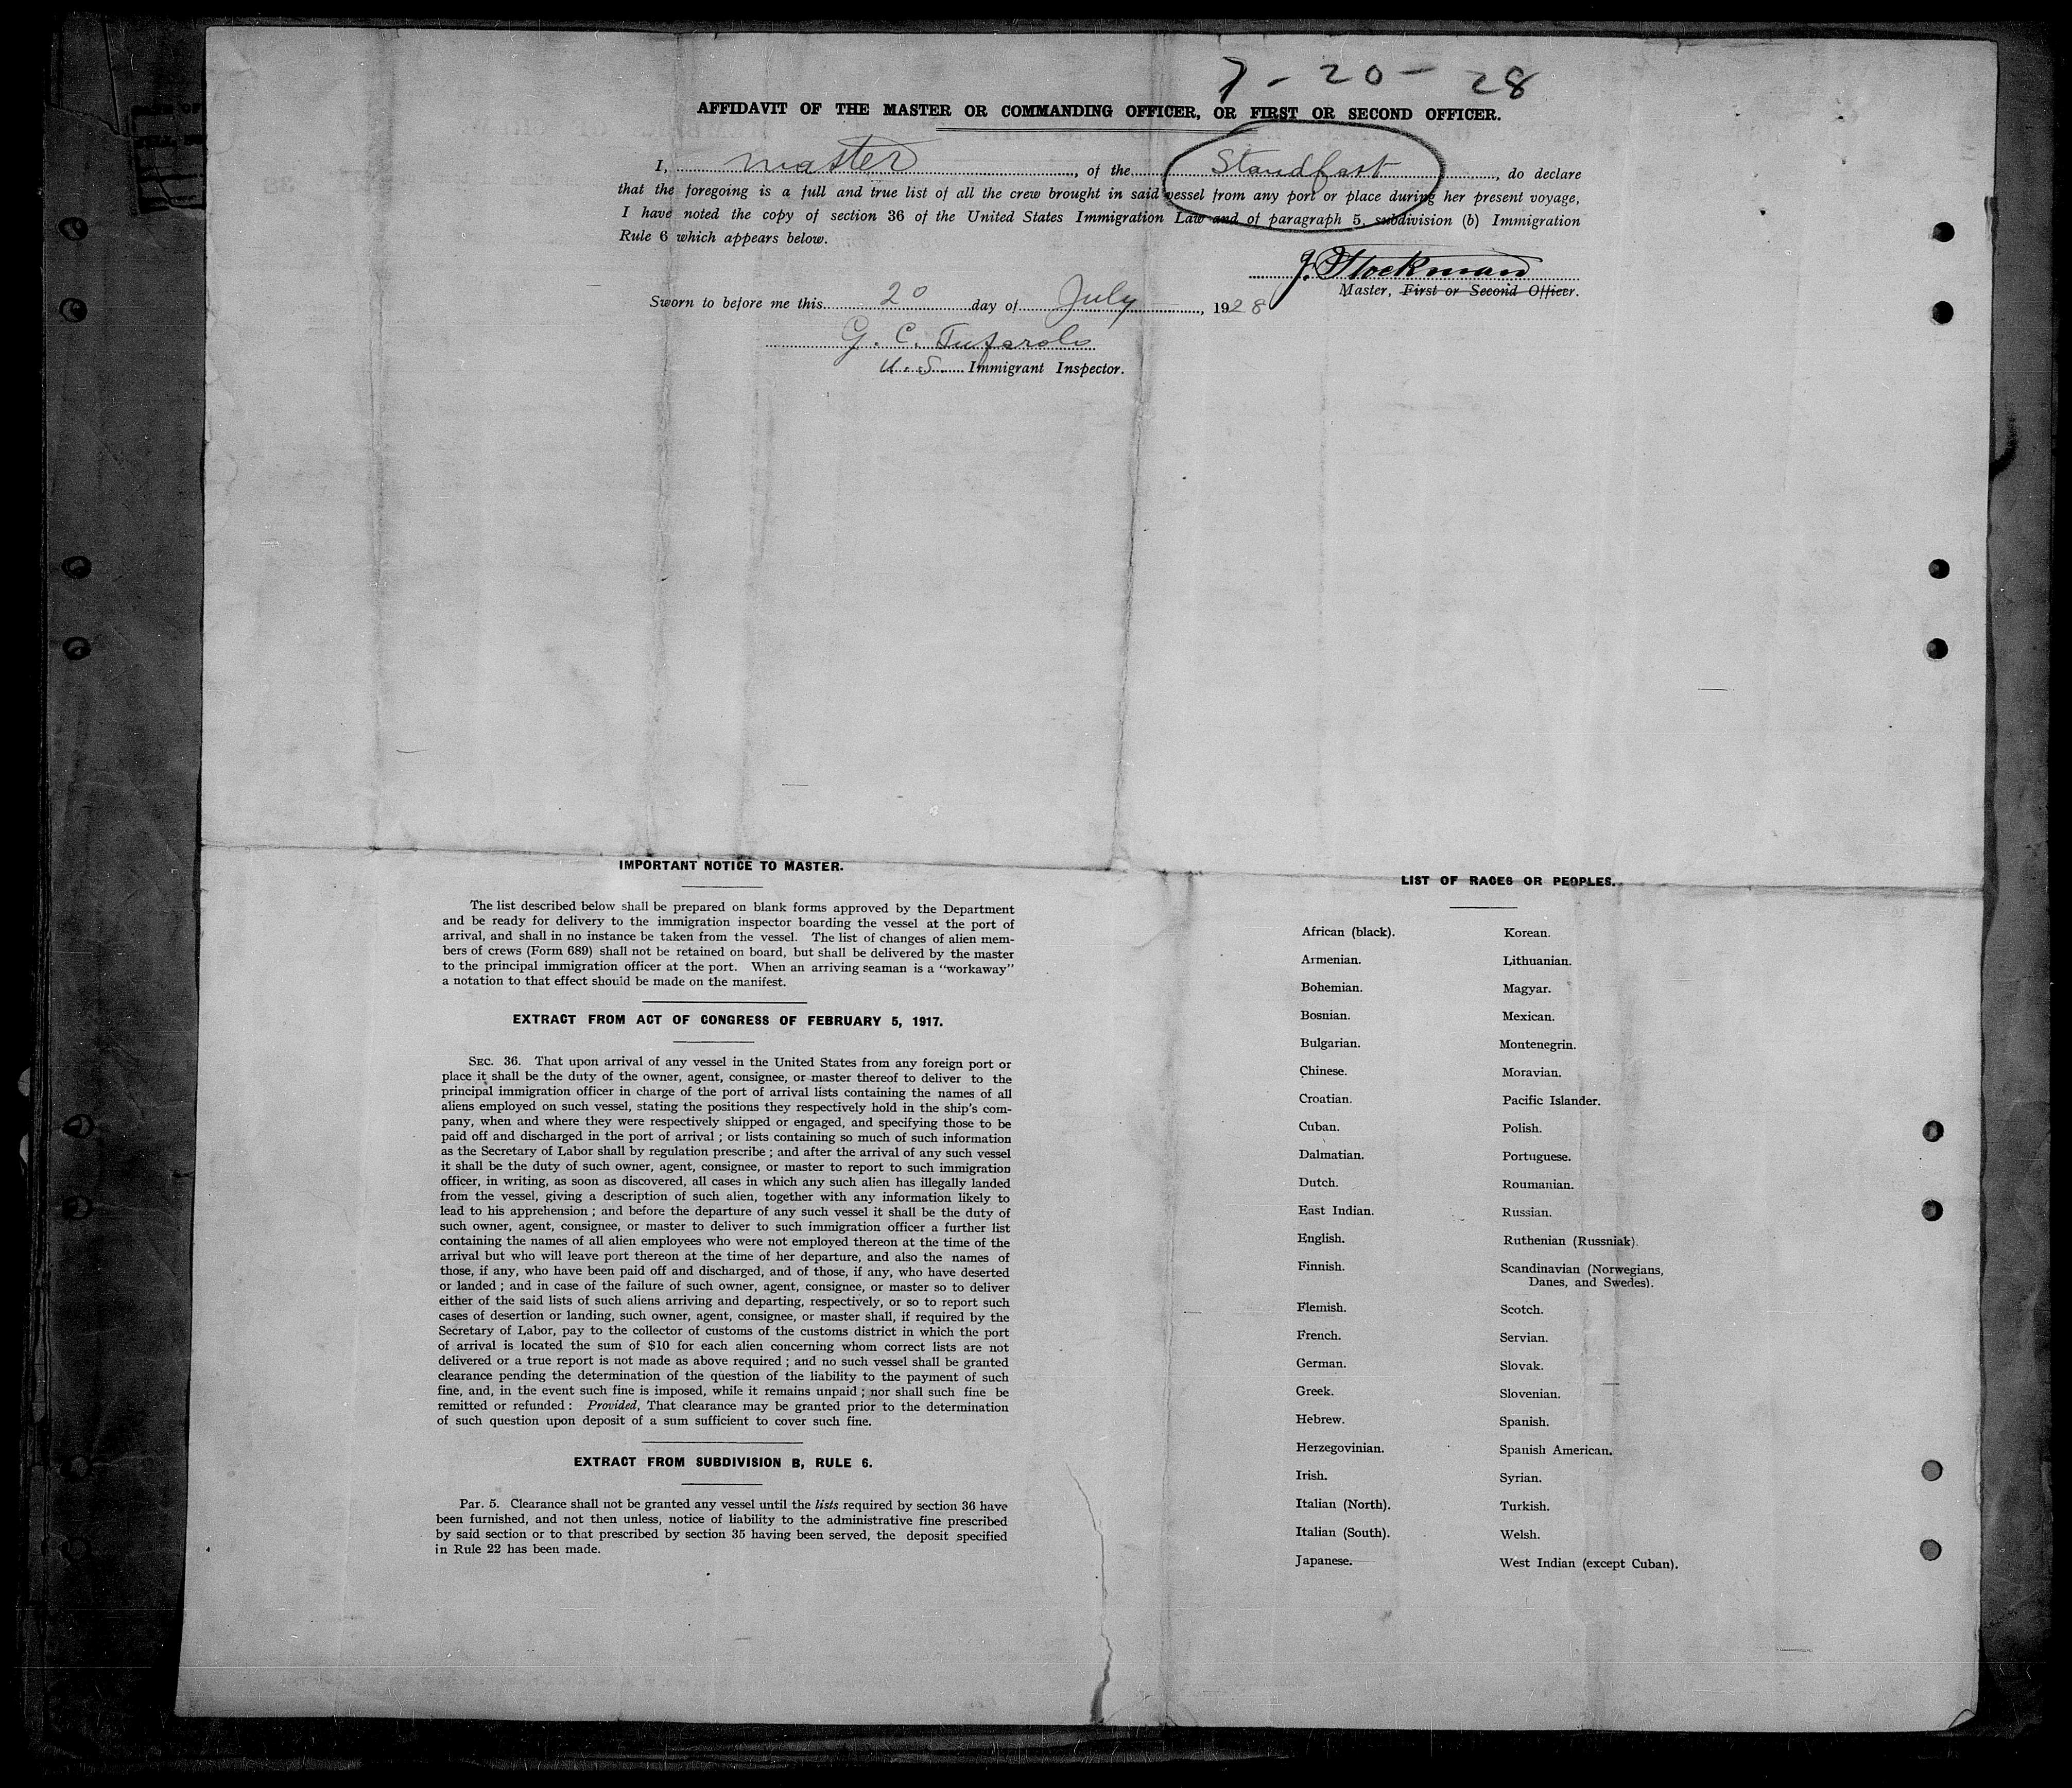 7 - 20 - 28
AFFIDAVIT OF THE MASTER OR COMMANDING OFFICER, OR FIRST OR SECOND OFFICER.
I, master, of the Standfast, do declare
that the foregoing is a full and true list of all the crew brought in said vessel from any port or place during her present voyage,
I have noted the copy of section 36 of the United States Immigration Law and of paragraph 5, subdivision (b) Immigration
Rule 6 which appears below.
J. Stockman
Master, First or Second Officer.
Sworn to before me this 20 day of July, 1928
G. C.
U. S. Immigrant Inspector.
IMPORTANT NOTICE TO MASTER.
The list described below shall be prepared on blank forms approved by the Department
and be ready for delivery to the immigration inspector boarding the vessel at the port of
arrival, and shall in no instance be taken from the vessel. The list of changes of alien mem-
bers of crews (Form 689) shall not be retained on board, but shall be delivered by the master
to the principal immigration officer at the port. When an arriving seaman is a "workaway"
a notation to that effect should be made on the manifest.
EXTRACT FROM ACT OF CONGRESS OF FEBRUARY 5, 1917.
SEC. 36. That upon arrival of any vessel in the United States from any foreign port or
place it shall be the duty of the owner, agent, consignee, or master thereof to deliver to the
principal immigration officer in charge of the port of arrival lists containing the names of all
aliens employed on such vessel, stating the positions they respectively hold in the ship's com-
pany, when and where they were respectively shipped or engaged, and specifying those to be
paid off and discharged in the port of arrival; or lists containing so much of such information
as the Secretary of Labor shall by regulation prescribe; and after the arrival of any such vessel
it shall be the duty of such owner, agent, consignee, or master to report to such immigration
officer, in writing, as soon as discovered, all cases in which any such alien has illegally landed
from the vessel, giving a description of such alien, together with any information likely to
lead to his apprehension; and before the departure of any such vessel it shall be the duty of
such owner, agent, consignee, or master to deliver to such immigration officer a further list
containing the names of all alien employees who were not employed thereon at the time of the
arrival but who will leave port thereon at the time of her departure, and also the names of
those, if any, who have been paid off and discharged, and of those, if any, who have deserted
or landed; and in case of the failure of such owner, agent, consignee, or master so to deliver
either of the said lists of such aliens arriving and departing, respectively, or so to report such
cases of desertion or landing, such owner, agent, consignee, or master shall, if required by the
Secretary of Labor, pay to the collector of customs of the customs district in which the port
of arrival is located the sum of $10 for each alien concerning whom correct lists are not
delivered or a true report is not made as above required; and no such vessel shall be granted
clearance pending the determination of the question of the liability to the payment of such
fine, and, in the event such fine is imposed, while it remains unpaid; nor shall such fine be
remitted or refunded: Provided, That clearance may be granted prior to the determination
of such question upon deposit of a sum sufficient to cover such fine.
EXTRACT FROM SUBDIVISION B, RULE 6.
Par. 5. Clearance shall not be granted any vessel until the lists required by section 36 have
been furnished, and not then unless, notice of liability to the administrative fine prescribed
by said section or to that prescribed by section 35 having been served, the deposit specified
in Rule 22 has been made.
LIST OF RACES OR PEOPLES.
African (black).
Armenian.
Bohemian.
Bosnian.
Bulgarian.
Chinese.
Croatian.
Cuban.
Dalmatian.
Dutch.
East Indian.
English.
Finnish.
Flemish.
French.
German.
Greek.
Hebrew.
Herzegovinian.
Irish.
Italian (North).
Italian (South).
Japanese.
Korean.
Lithuanian.
Magyar.
Mexican.
Montenegrin.
Moravian.
Pacific Islander.
Polish.
Portuguese.
Roumanian.
Russian.
Ruthenian (Russniak).
Scandinavian (Norwegians,
Danes, and Swedes).
Scotch.
Servian.
Slovak.
Slovenian.
Spanish.
Spanish American.
Syrian.
Turkish.
Welsh.
West Indian (except Cuban).